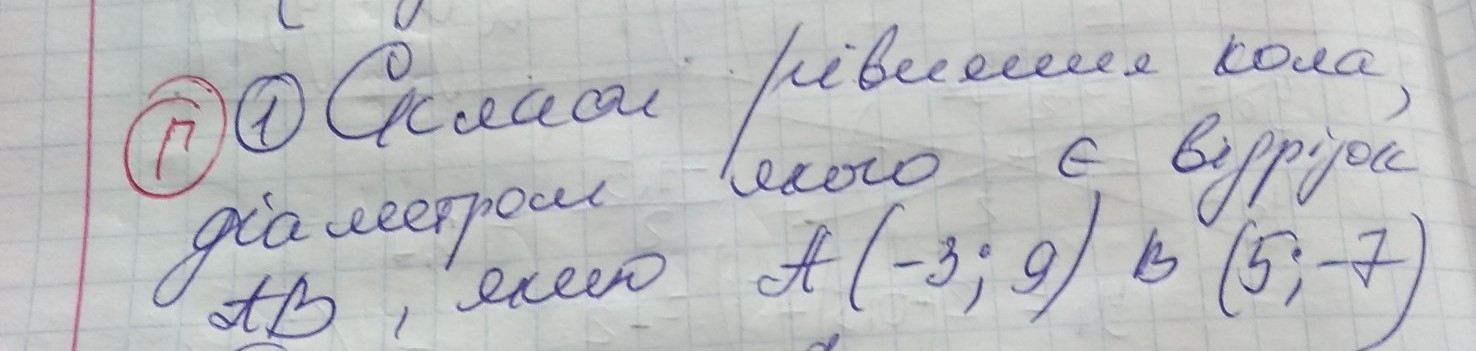 П 1 Склади рівняння кола,
діаметром якого є відрізок
AB, якщо A(-3; 9) B (5; -7)